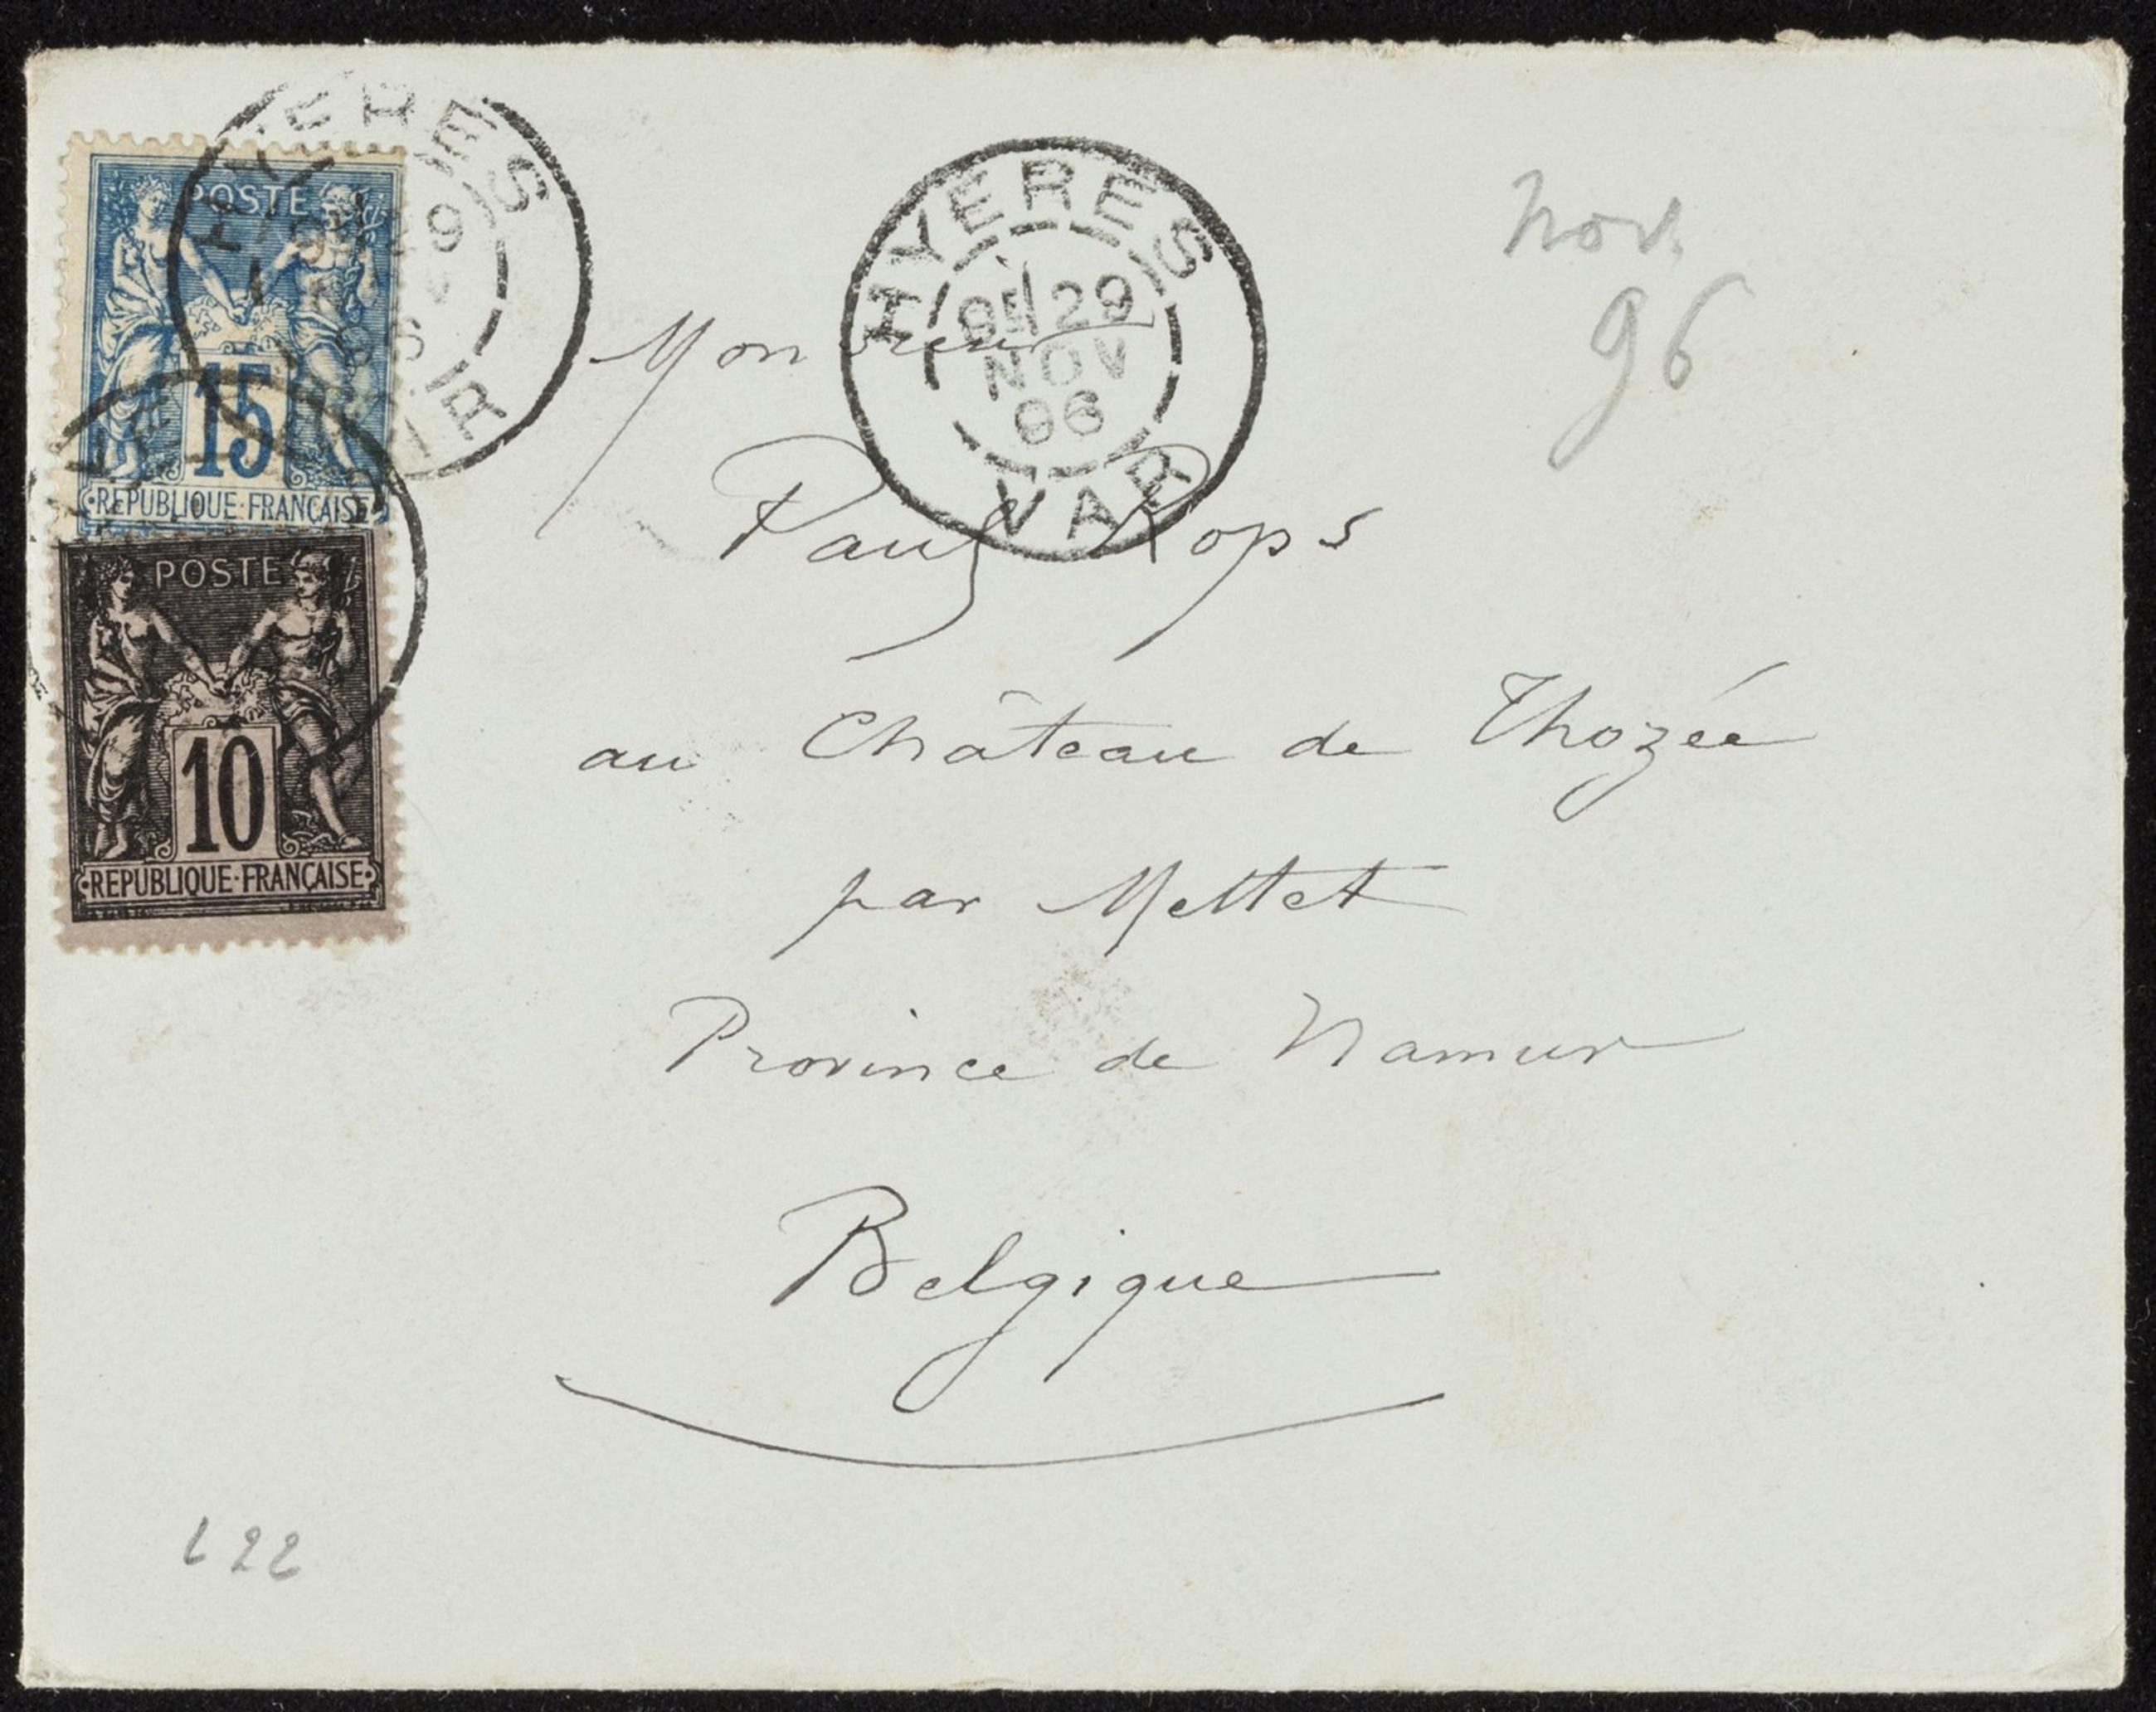 HYERES
VAR
POSTE
15
REPUBLIQUE·FRANÇAISE
POSTE
10
REPUBLIQUE·FRANÇAISE
HYERES
9E/29
NOV
96
VAR
Nov.
96
Monsieur
Paul Rops
au Château de Thozée
par Mettet
Province de Namur
Belgique
122